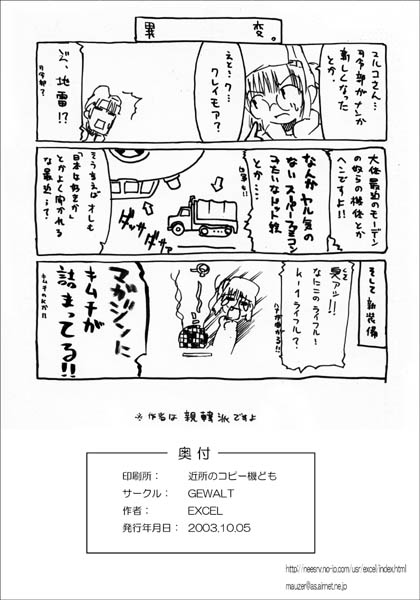 異変。
スルコさん…
司令部がナンか
新しくなった
とか。
えと…ク…
クレイモア?
ジ、地雷!?
大体最近のモーデン
の奴らの機体とか
ヘンですよ!!
なんか ヤル気の
ない スーパーファミコン
みたいなドット絵
とか…
ダッサダッサァ
そういえば オレも
「日本は好きか」
とかよく聞かれる
な最近…って
そして新装備
臭アッ!!
なにこのライフル…
k-1ライフル?
ハナが曲がる!!
マガジンに
キムチが
詰まってる!!
※ 作者は 親韓派ですよ
奥 付
印刷所: 近所のコピー機ども
サークル: GEWALT
作者: EXCEL
発行年月日: 2003.10.05
http://neesrv.no-io.com/usr/excel/index.html
mauzer@as.airnet.ne.jp